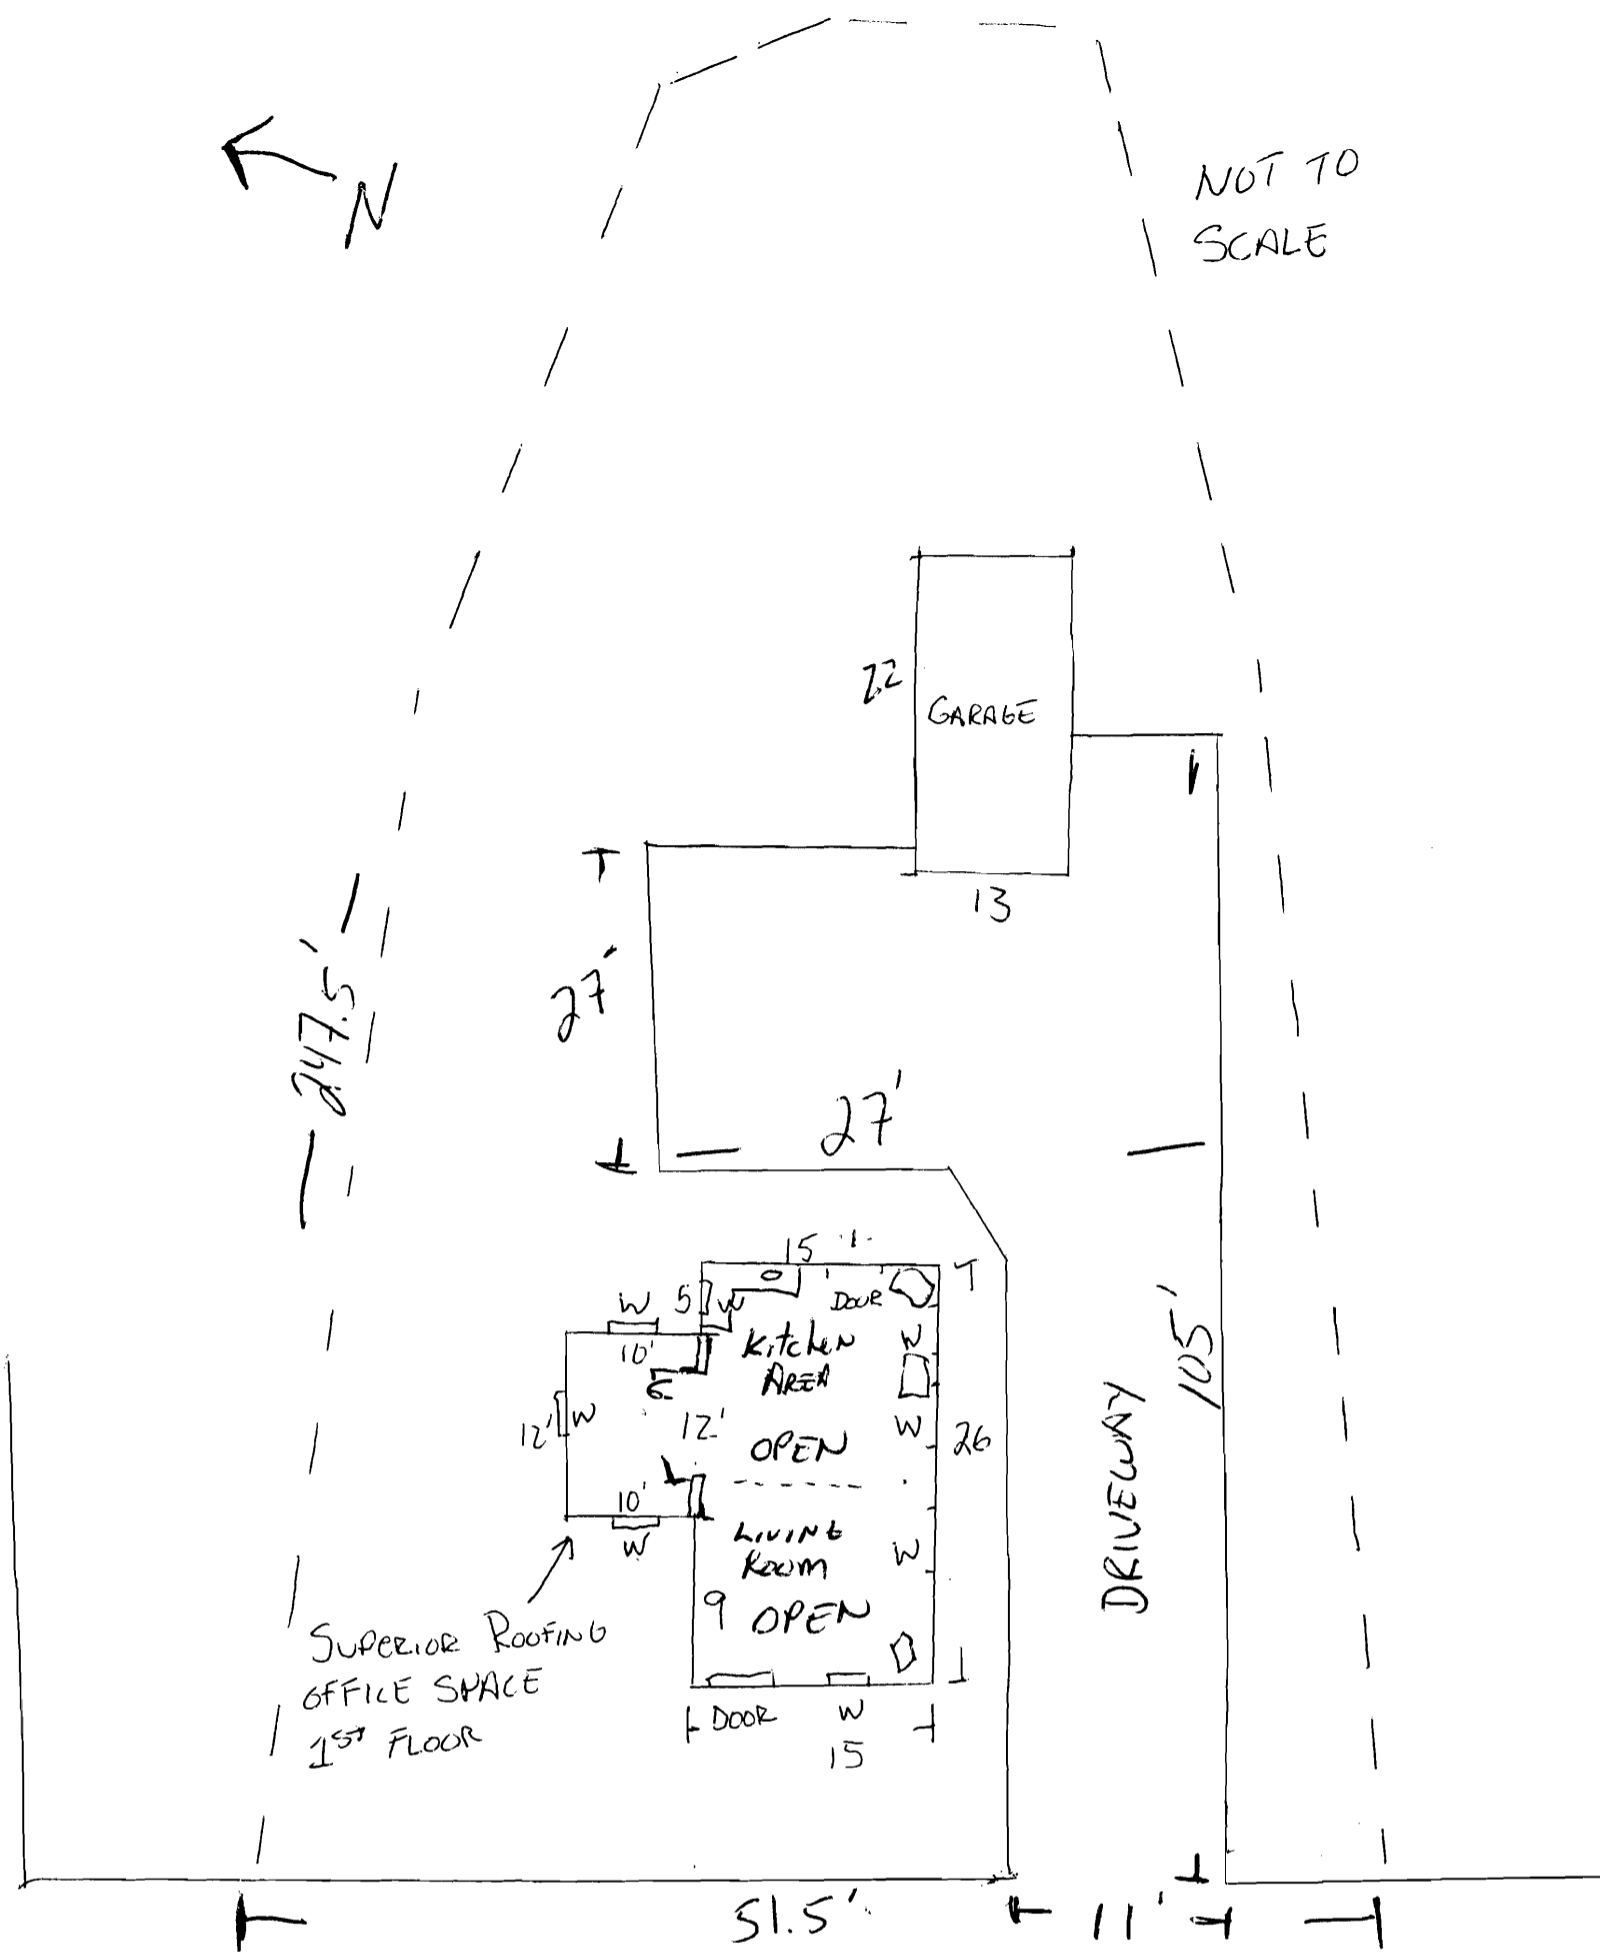 N
NOT TO
SCALE
22
GARAGE
13
27'
27'
247.5'
15
W
5
W
DOOR
10'
Kitchen
AREA
W
6
12'
W
12'
OPEN
W
26
10'
W
LIVING
ROOM
W
9
OPEN
DRIVEWAY
105'
SUPERIOR ROOFING
OFFICE SPACE
1ST FLOOR
DOOR
W
15
51.5'
11'